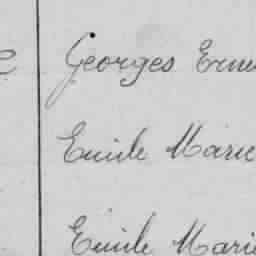 Georges Ern
Emile Marie
Emile Marie